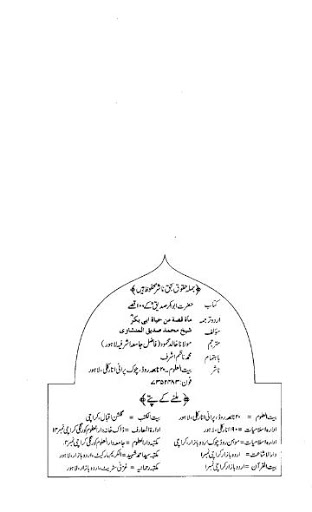 ﴿جملہ حقوق بحق ناشر محفوظ ہیں﴾
کتاب حضرت ابوبکر صدیقؓ کے ۱۰۰ قصے
اردو ترجمہ مأة قصة من حياة ابى بكرؓ
مؤلف شیخ محمد صدیق المنشاوی
مترجم مولانا خالد محمود (فاضل جامعہ اشرفیہ لاہور)
باہتمام محمد ناظم اشرف
ناشر بیت العلوم۔ ۲۰ نابھہ روڈ، چوک پرانی انارکلی، لاہور
فون: ۷۳۵۲۴۸۳
﴿ملنے کے پتے﴾
بیت العلوم = ۲۰ نابھہ روڈ، پرانی انارکلی، لاہور
ادارہ اسلامیات = ۱۹۰ انارکلی، لاہور
ادارہ اسلامیات = موہن روڈ چوک اردو بازار، کراچی
دارالاشاعت = اردو بازار کراچی نمبر۱
بیت القرآن = اردو بازار کراچی نمبر۱
بیت الکتب = گلشن اقبال، کراچی
ادارۃ المعارف = ڈاک خانہ دارالعلوم کورنگی کراچی نمبر۱۴
مکتبہ دارالعلوم = جامعہ دارالعلوم کورنگی کراچی نمبر۱۴
مکتبہ سید احمد شہید = الکریم مارکیٹ، اردو بازار، لاہور
مکتبہ رحمانیہ = غزنی سٹریٹ، اردو بازار، لاہور